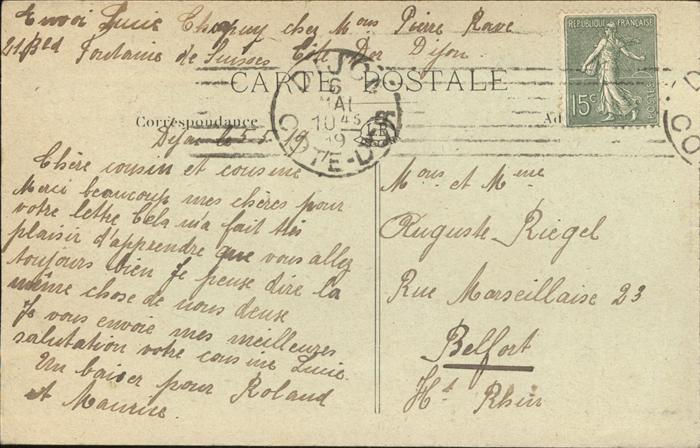 Envoi Lucie chez Mons Pierre
21 Bd Fontaine de Suisses Cité Dijon
CARTE POSTALE
RÉPUBLIQUE FRANÇAISE
15c
POSTES
DIJON
6
MAI
10 45
19
COTE-D'OR
Correspondance
Ad
D
CO
Dijon le 5 5 19
Chère cousin et cousine
Merci beaucoup mes chères pour
votre lettre Cela m'a fait très
plaisir d'apprendre que vous allez
toujours bien Je peuse dire la
même chose de nous deuse
Je vous envoie mes meilleures
salutation votre cousine Lucie
Un baiser pour Roland
et Maurice.
Mons et Mme
Auguste Riegel
Rue Marseillaise 23
Belfort
Ht Rhin